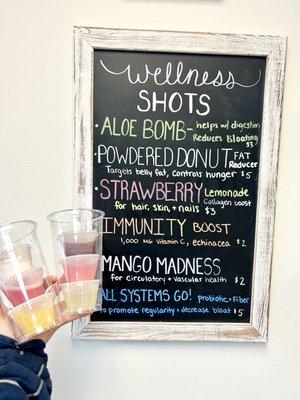 Wellness
SHOTS
• ALOE BOMB- helps w/ digestion
Reduces Bloating
$3
• POWDERED DONUT FAT
Reducer
Targets belly fat, controls hunger $5
• STRAWBERRY Lemonade
Collagen boost
for hair, skin, + nails $3
IMMUNITY BOOST
1,000 mg Vitamin C, echinacea $2
MANGO MADNESS
for Circulatory + Vascular health $2
ALL SYSTEMS GO! probiotic + Fiber
to promote regularity + decrease bloat $5